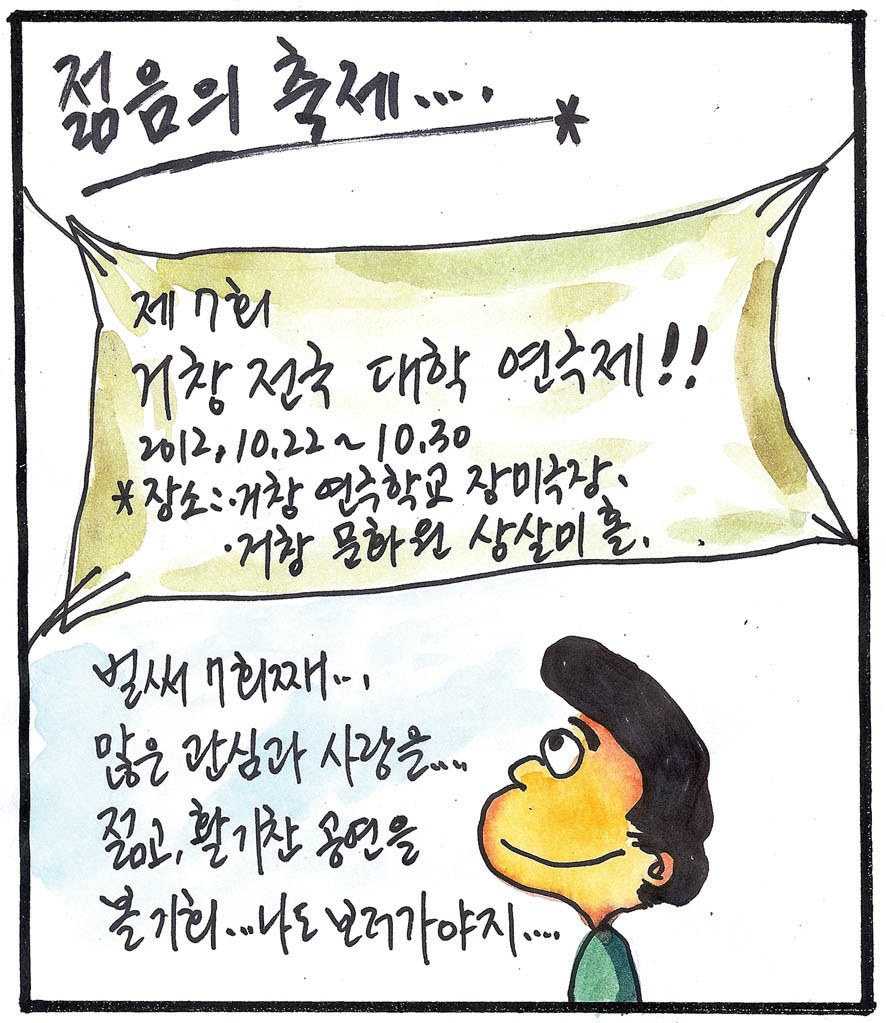 젊음의 축제....
제 7회
거창 전국 대학 연극제!!
2012.10.22~10.30
*장소: ·거창 연극학교 장미극장.
·거창 문화원 상살미홀.
벌써 7회째...
많은 관심과 사랑을....
젊고, 활기찬 공연을
볼 기회...나도 보러가야지....